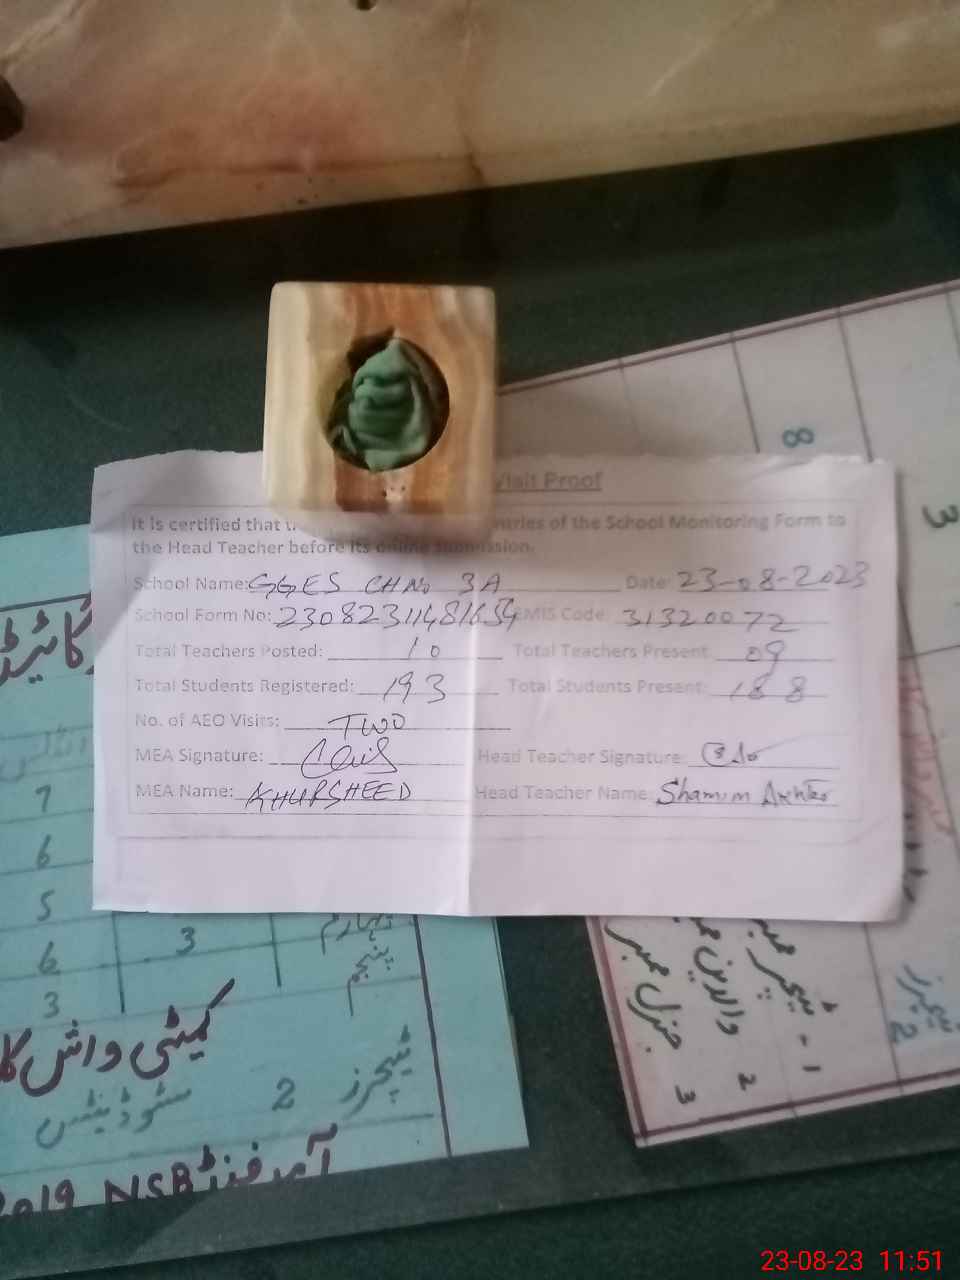 Visit Proof
It is certified that entries of the School Monitoring Form to
the Head Teacher before its online submission.
School Name: GGES CH No 3A Date: 23-08-2023
School Form No: EMIS Code: 31320072
Total Teachers Posted: 10 Total Teachers Present: 09
Total Students Registered: 193 Total Students Present: 188
No. of AEO Visits: TWO
MEA Signature: Head Teacher Signature:
MEA Name: KHURSHEED Head Teacher Name: Shamim Akhter
8
3
7
6
5
6 3 پنجم
3
کمیٹی واش کا
ٹیچرز 2 سٹوڈینٹس
2019 NSB آمد فنڈ
1 - ٹیچر ممبر
2 والدین
3 جنرل ممبر
ٹیچرز 2
23-08-23 11:51